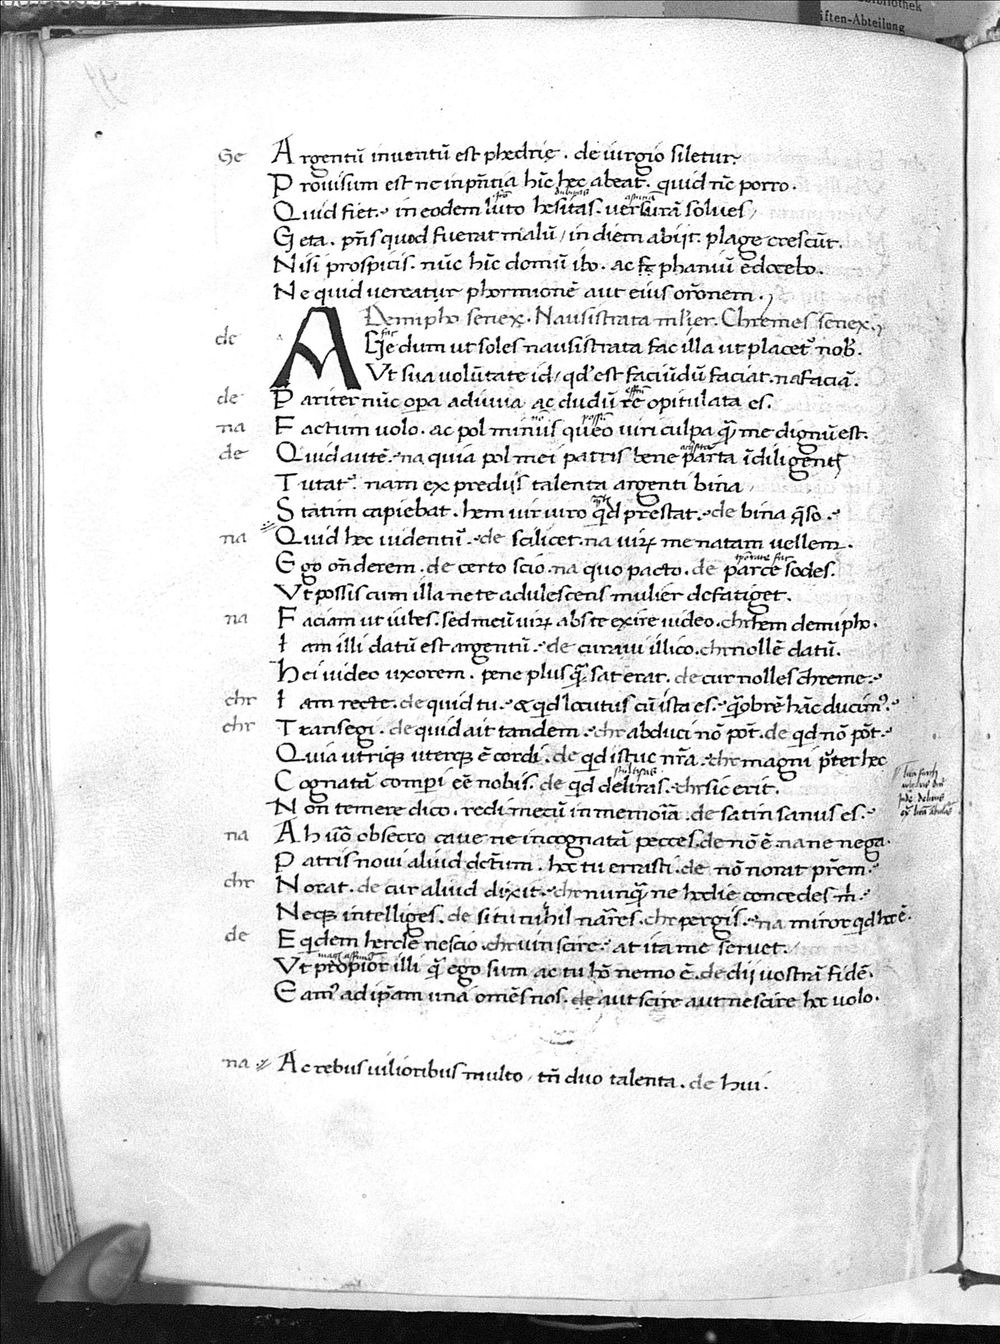 Bibliothek
iften-Abteilung
Ge Argentū inventū est phedrie . de iurgio siletur.
Provisum est ne in pn̄tia hīc hęc abeat . quid nc̄ porro.
Quid fiet. in eodem luto hesitas . versurā solves
Geta . pn̄s quod fuerat malū / in diem abiit . plage crescūt.
Nisi prospicis . nūc hīc domū ibo . ac phaniū ēdocebo.
Ne quid vereatur phormionē aut eius orōnem.
Demipho senex . Nausistrata mlier . Chremes senex.
de Age dum ut soles nausistrata fac illa ut placet nob.
Ut sua volūtate id / qd est faciūdū faciat . na Faciā.
de Pariter nūc opa adiuvia ac dudū rē opitulata es.
na Factum volo . ac pol minus queo viri culpa q̄ me dignū est.
de Quid autē . na quia pol mei patris bene parta īdiligent
Tutat . nam ex prediis talenta argenti bina
Statim capiebat . hem vir viro qd prestat . de bina q̄so.
na Quid hec videntur . de scilicet . na virū me natam vellem.
Ego on̄derem . de certo scio . na quo pacto . de parce sodes.
Ut possis cum illa ne te adulescens mulier defatiget.
na Faciam ut iubes . sed meū virū abs te exire video . chr hem demipho.
Iam illi datū est argentū . de curavi illico . chr nollē datū.
Hei video uxorem . pene plus q̄ sat erat . de cur nolles chreme.
chr Iam recte . de quid tu . & qd locutus cū ista es . q̄obrē hāc ducim.
chr Transegi . de quid ait tandem . chr abduci nō pōt . de qd nō pōt.
Quia utriq uterq ē cordi . de qd istuc nr̄a . chr magni pter hec
Cognatā comperi eē nobis . de qd deliras . chr sic erit.
Non temere dico . redi mecū in memoriā . de satin sanus es.
na Ah uō obsecro cave ne in cognatā pecces . de nō ē . na ne nega.
Patris novi aliud dctum . hoc tu errasti . de nō norat prem.
chr Norat . de cur aliud dixit . chr nunq̄ ne hodie concedes m̄
Neq intelliges . de si tu nihil nares . chr pergis . na miror qd hoc ē.
de Eqdem hercle nescio . chr vin scire . at ita me servet.
Ut propior illi q̄ ego sum ac tu hō nemo ē . de dii vostrā fidē.
Eam ad ipam una omēs nos . de aut scire aut nescire hoc volo.
na Ac rebus vilioribus multo / tn̄ duo talenta . de hui.